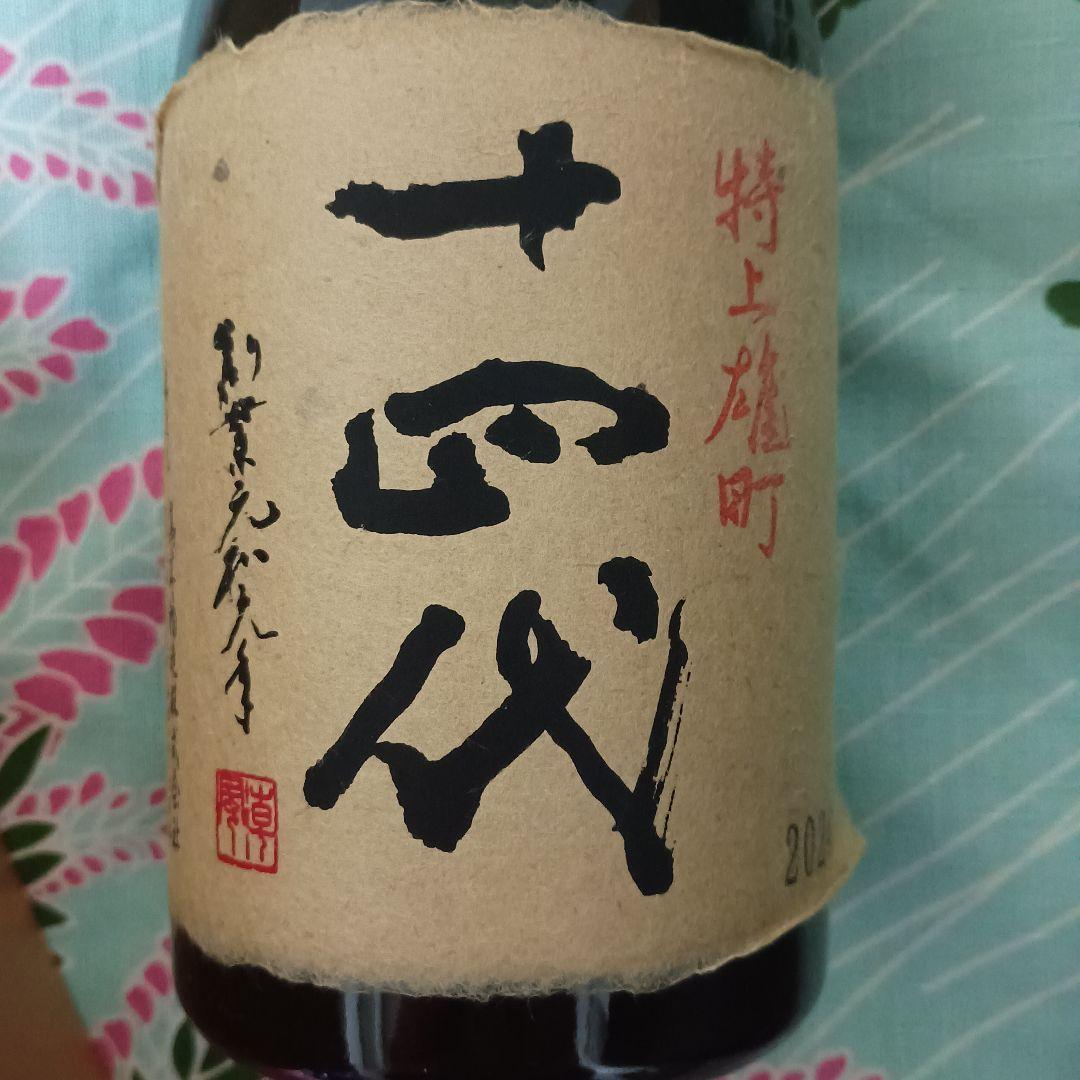 特上雄町
十四代
創業元和元年